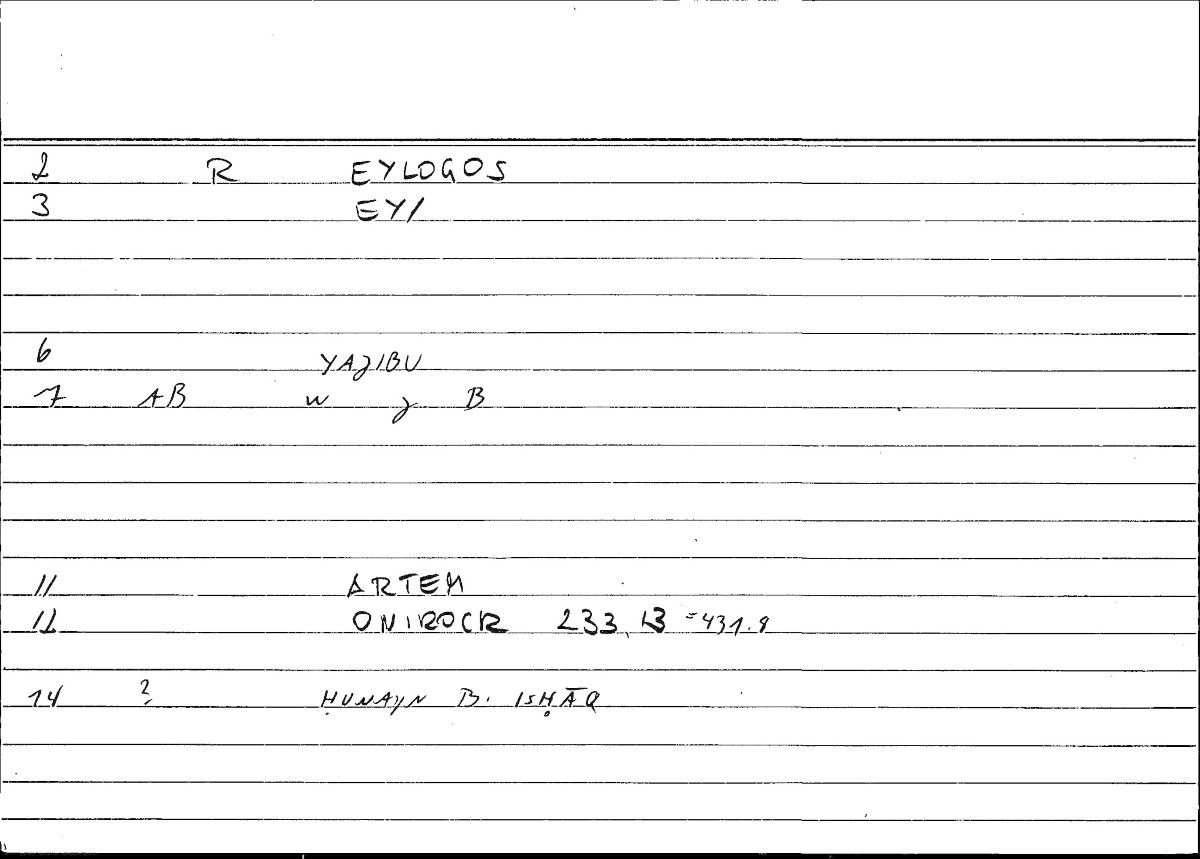 2 R EYLOGOS
3 EY/
6 YAJIBU
7 AB w j B
11 ARTEM
12 ONIROCR 233, 13 =431.8
14 ? ḤUNAYN B. ISḤĀQ